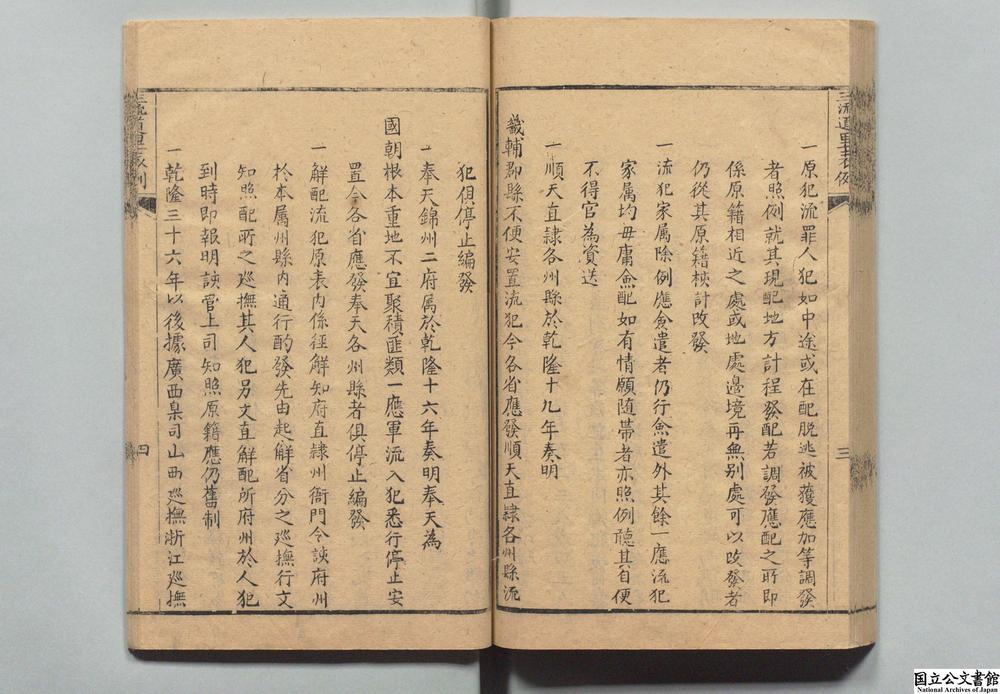 三流道里表凡例
三
一原犯流罪人犯如中途或在配脱逃被獲應加等調發
者照例就其現配地方計程發配若調發應配之所即
係原籍相近之處或地處邊境再無别處可以改發者
仍從其原籍核計改發
一流犯家属除例應僉遣者仍行僉遣外其餘一應流犯
家属均毋庸僉配如有情願随帶者亦照例聽其自便
不得官為資送
一順天直隷各州縣於乾隆十九年奏明
畿輔郡縣不便安置流犯今各省應發順天直隷各州縣流
犯俱停止編發
一奉天錦州二府属於乾隆十六年奏明奉天為
國朝根本重地不宜聚積匪類一應軍流人犯悉行停止安
置今各省應發奉天各州縣者俱停止編發
一解配流犯原表内係徑解知府直隷州衙門令該府州
於本属州縣内通行酌發先由起解省分之廵撫行文
知照配所之廵撫其人犯另文直解配所府州於人犯
到時即報明該管上司知照原籍應仍舊制
一乾隆三十六年以後據廣西臬司山西廵撫浙江廵撫
四
国立公文書館
National Archives of Japan